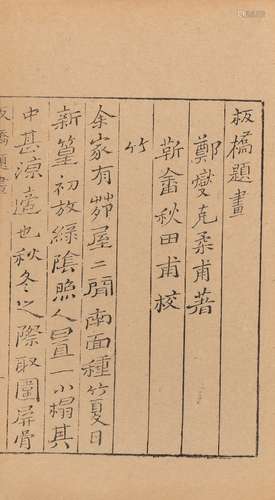 板橋題畫
鄭燮克柔甫著
靳畬秋田甫校
竹
余家有茆屋二間南面種竹夏日
新篁初放綠陰照人置一小榻其
中甚涼適也秋冬之際取圍屏骨
板橋題畫